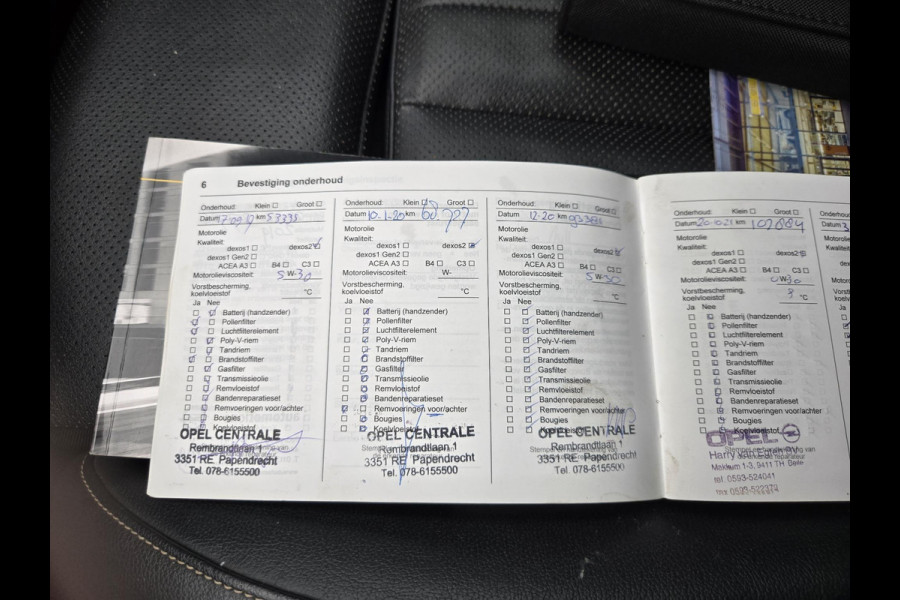 6 Bevestiging onderhoud
Onderhoud: Klein Groot
Datum km 53335
Motorolie
Kwaliteit:
dexos1 dexos2
dexos1 Gen2
ACEA A3 B4 C3
Motorolieviscositeit: 5 W-30
Vorstbescherming,
koelvloeistof °C
Ja Nee
Batterij (handzender)
Pollenfilter
Luchtfilterelement
Poly-V-riem
Tandriem
Brandstoffilter
Gasfilter
Transmissieolie
Remvloeistof
Bandenreparatieset
Remvoeringen voor/achter
Bougies
Koelvloeistof
OPEL CENTRALE
Rembrandtlaan 1
3351 RE Papendrecht
Tel. 078-6155500
Onderhoud: Klein Groot
Datum 10-1-20 km
Motorolie
Kwaliteit:
dexos1 dexos2
dexos1 Gen2
ACEA A3 B4 C3
Motorolieviscositeit: W-
Vorstbescherming,
koelvloeistof °C
Ja Nee
Batterij (handzender)
Pollenfilter
Luchtfilterelement
Poly-V-riem
Tandriem
Brandstoffilter
Gasfilter
Transmissieolie
Remvloeistof
Bandenreparatieset
Remvoeringen voor/achter
Bougies
Koelvloeistof
OPEL CENTRALE
Rembrandtlaan 1
3351 RE Papendrecht
Tel. 078-6155500
Onderhoud: Klein Groot
Datum 12-20 km
Motorolie
Kwaliteit:
dexos1 dexos2
dexos1 Gen2
ACEA A3 B4 C3
Motorolieviscositeit: 5 W-30
Vorstbescherming,
koelvloeistof °C
Ja Nee
Batterij (handzender)
Pollenfilter
Luchtfilterelement
Poly-V-riem
Tandriem
Brandstoffilter
Gasfilter
Transmissieolie
Remvloeistof
Bandenreparatieset
Remvoeringen voor/achter
Bougies
Koelvloeistof
OPEL CENTRALE
Rembrandtlaan 1
3351 RE Papendrecht
Tel. 078-6155500
Onderhoud: Klein Groot
Datum km
Motorolie
Kwaliteit:
dexos1 dexos2
dexos1 Gen2
ACEA A3 B4 C3
Motorolieviscositeit: 0W30
Vorstbescherming,
koelvloeistof ? °C
Ja Nee
Batterij (handzender)
Pollenfilter
Luchtfilterelement
Poly-V-riem
Tandriem
Brandstoffilter
Gasfilter
Transmissieolie
Remvloeistof
Bandenreparatieset
Remvoeringen voor/achter
Bougies
Koelvloeistof
OPEL
Harry
Mekkum 1-3, 9411 TH Beile
tel. 0593-524041
fax 0593-522379